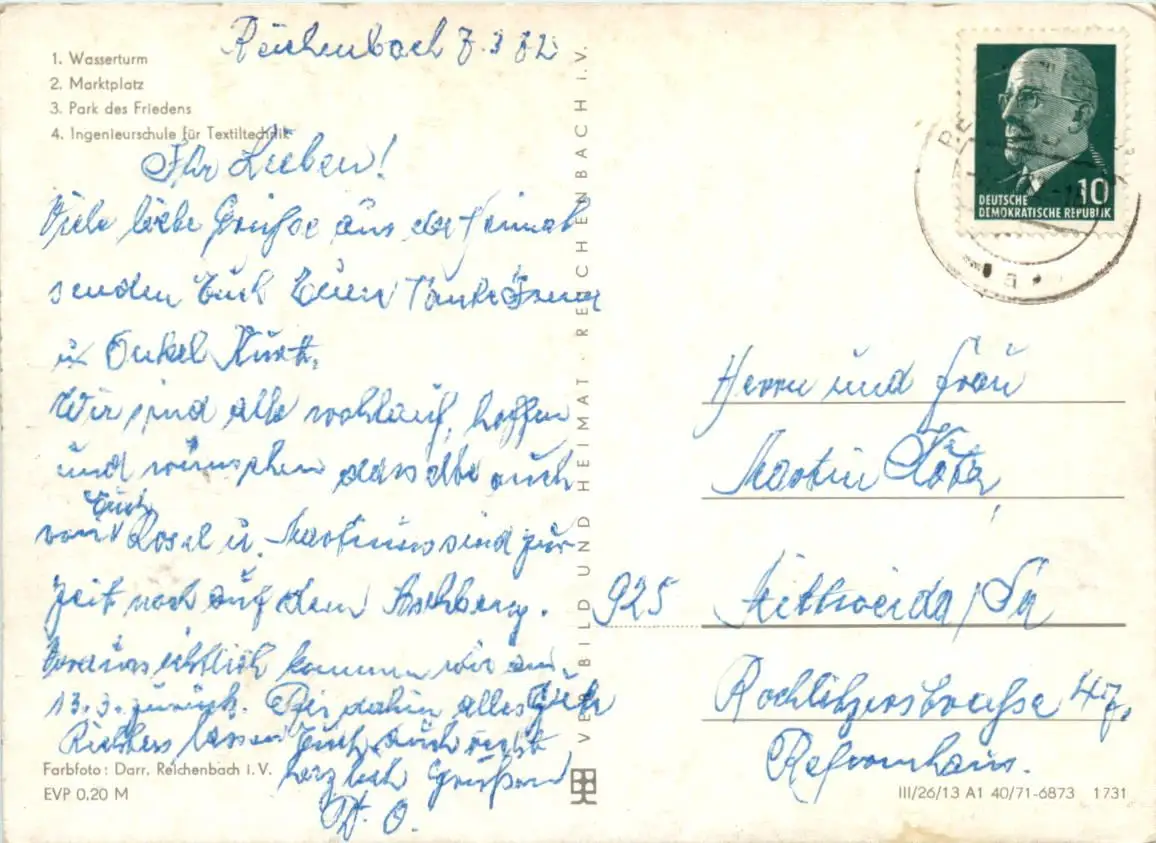 Reichenbach 7.3.72
1. Wasserturm
2. Marktplatz
3. Park des Friedens
4. Ingenieurschule für Textiltechnik
Ihr Lieben!
Viele liebe Grüße aus der Heimat
senden Euch Euere Tante
u. Onkel Kurt.
Wir sind alle wohlauf, hoffen
und wünschen dasselbe auch
von Euch
Rosel u. Martin sind zur
Zeit noch auf dem Aschberg.
Voraussichtlich kommen wir am
13.3. zurück. Bis dahin alles Gute
lassen Euch auch recht
herzlich Grüßen
D. O.
Farbfoto: Darr. Reichenbach i. V.
EVP 0,20 M
VEB BILD UND HEIMAT · REICHENBACH I. V.
10
DEUTSCHE
DEMOKRATISCHE REPUBLIK
Herrn und Frau
Martin
925 Mittweida/Sa
Rochlitzerstraße 47,
Reformhaus.
III/26/13 A1 40/71-6873 1731